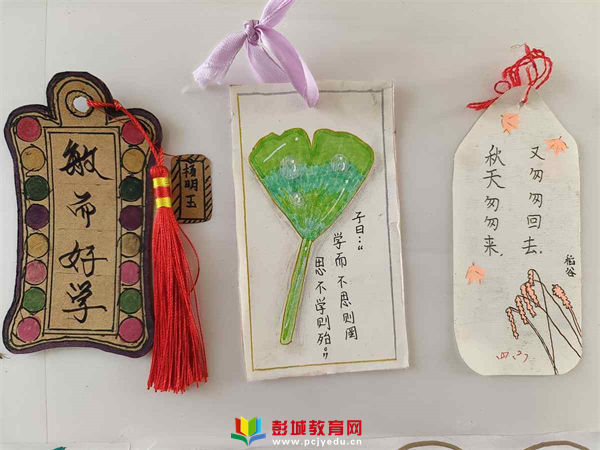 敏而好学
杨明玉
子曰:“
学而不思则罔
思不学则殆。”
秋天匆匆来,
又匆匆回去.
稻谷
彭城教育网
www.pcjyedu.cn